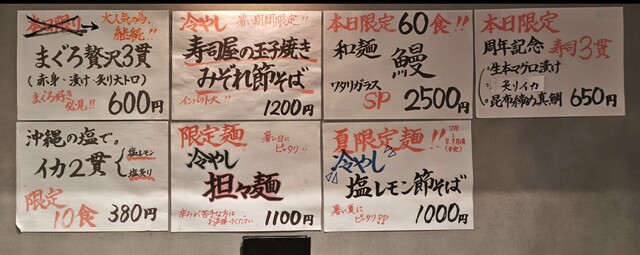 本日限り→大人気の為、
継続!!
まぐろ贅沢3貫
(赤身・漬け・炙り大トロ)
まぐろ好き
必見!! 600円
冷やし 暑い期間限定!!
寿司屋の玉子焼き
みぞれ節そば
インパクト大!! 1200円
本日限定60食!!
和麺 鰻
ワタリガラス
SP 2500円
本日限定
周年記念 寿司3貫
・生本マグロ漬け
・炙りイカ
・昆布締め真鯛 650円
沖縄の塩で。
イカ2貫 塩レモン
塩炙り
限定
10食 380円
限定麺 暑い日に
ピッタリ!!
冷やし
担々麺
辛みが苦手な方は
お声掛けください 1100円
夏限定麺!!
冷やし
塩レモン節そば
暑い夏に
ピッタリ!! 1000円